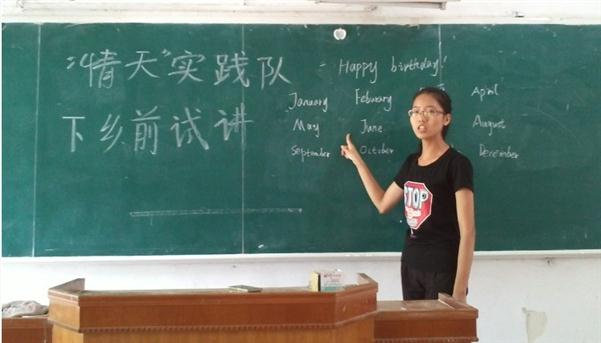 "情天"实践队
下乡前试讲
- Happy birthday!
January Feburary April
May June August
September October December
STOP